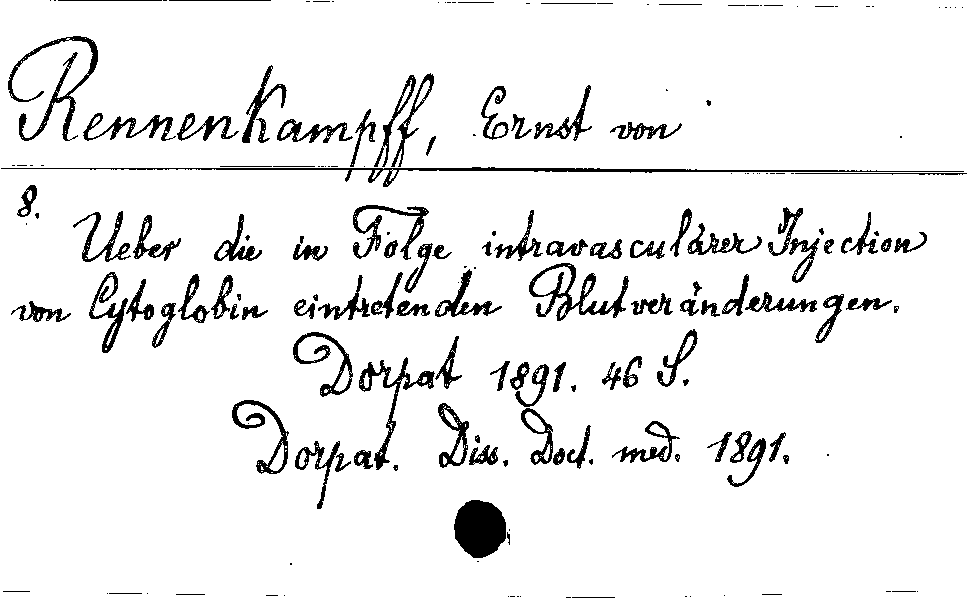 Rennenkampff, Ernst von
8.
Ueber die in Folge intravasculärer Injection
von Cytoglobin eintretenden Blutveränderungen.
Dorpat 1891. 46 S.
Dorpat. Diss. Doct. med. 1891.